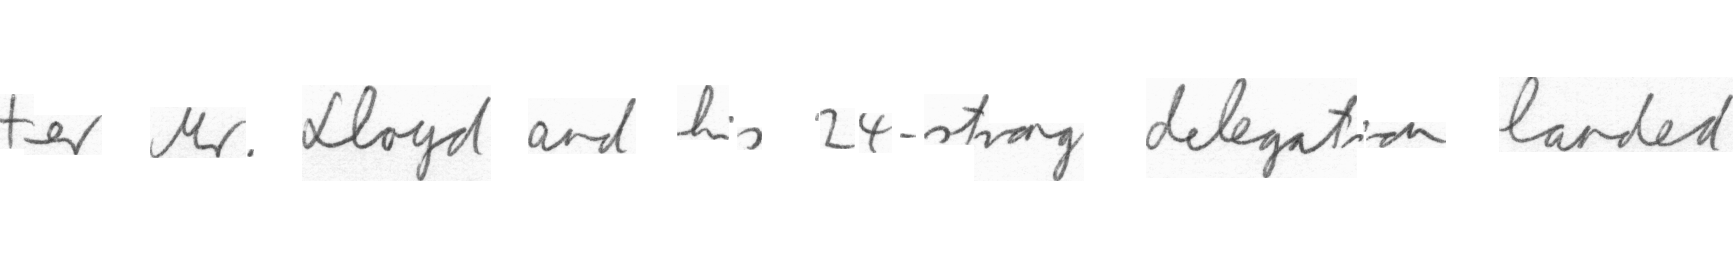 ter Mr. Lloyd and his 24-strong delegation landed